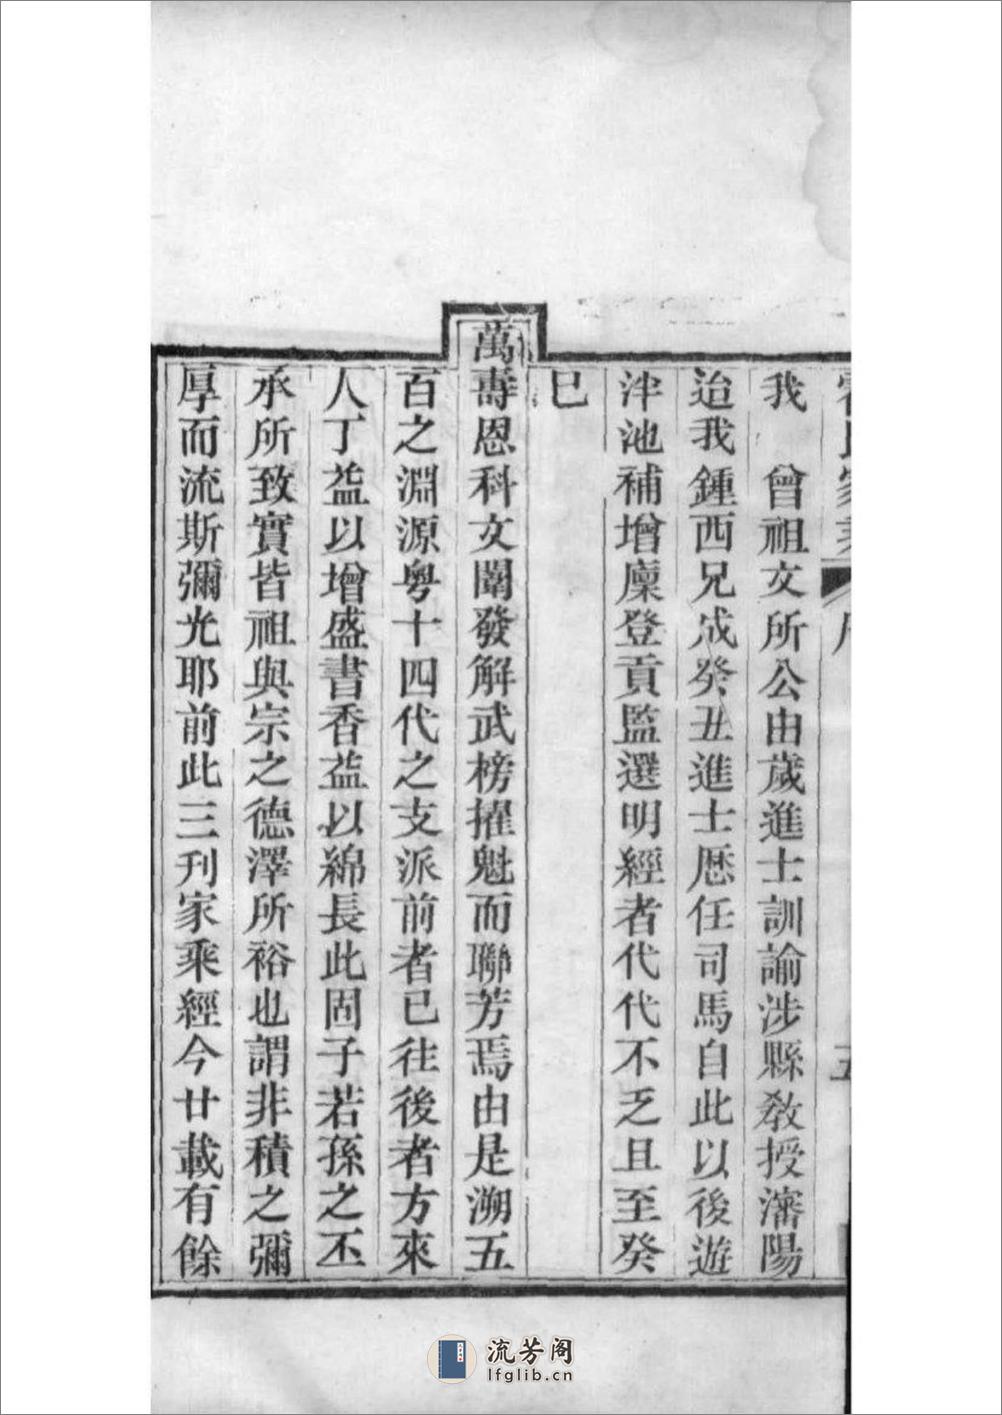 我　曾祖文所公由歲進士訓諭涉縣教授瀋陽
迨我鍾西兄成癸丑進士歷任司馬自此以後遊
泮池補增廩登貢監選明經者代代不乏且至癸
巳
萬壽恩科文闈發解武榜擢魁而聯芳焉由是溯五
百之淵源粤十四代之支派前者已往後者方來
人丁益以增盛書香益以綿長此固子若孫之丕
承所致實皆祖與宗之德澤所裕也謂非積之彌
厚而流斯彌光耶前此三刊家乘經今廿載有餘
流芳阁
lfglib.cn